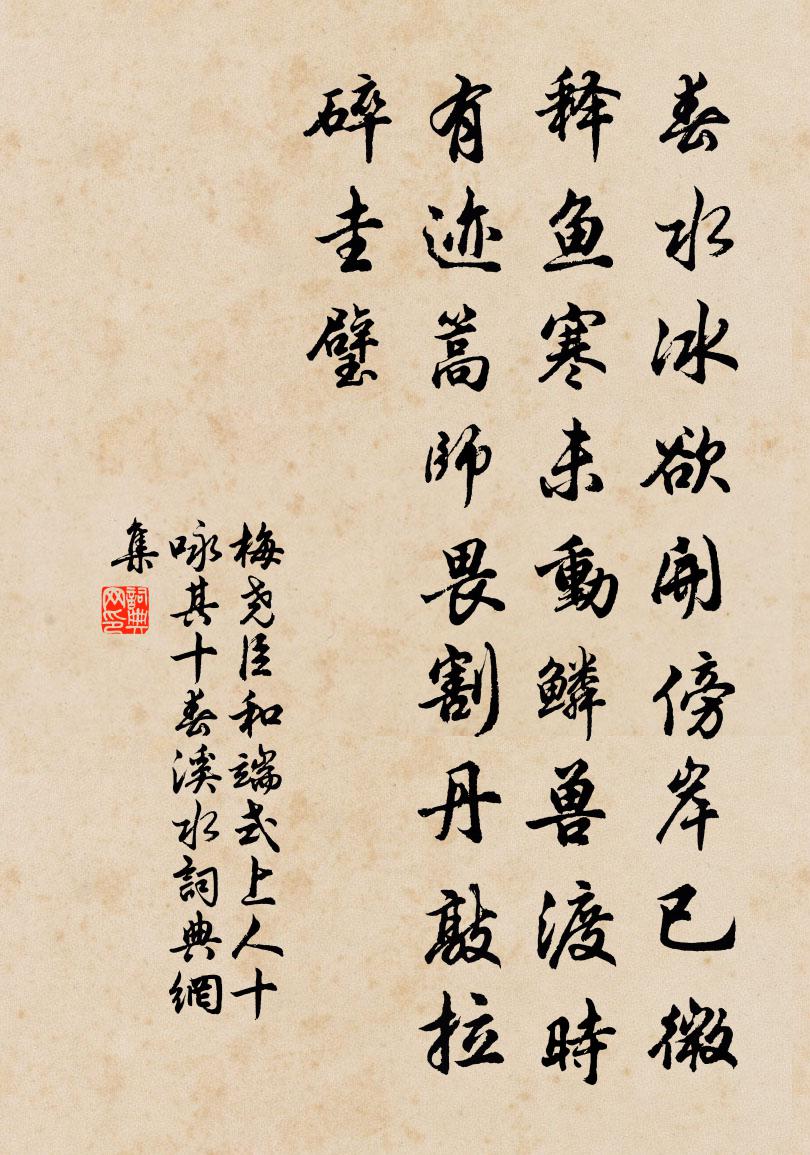 春水冰欲開傍岸已微
释鱼寒未動鱗兽渡時
有迹篙師畏割丹敲拉
碎圭璧
梅尧臣和端式上人十
咏其十春溪水詞典網
集
詞典网印